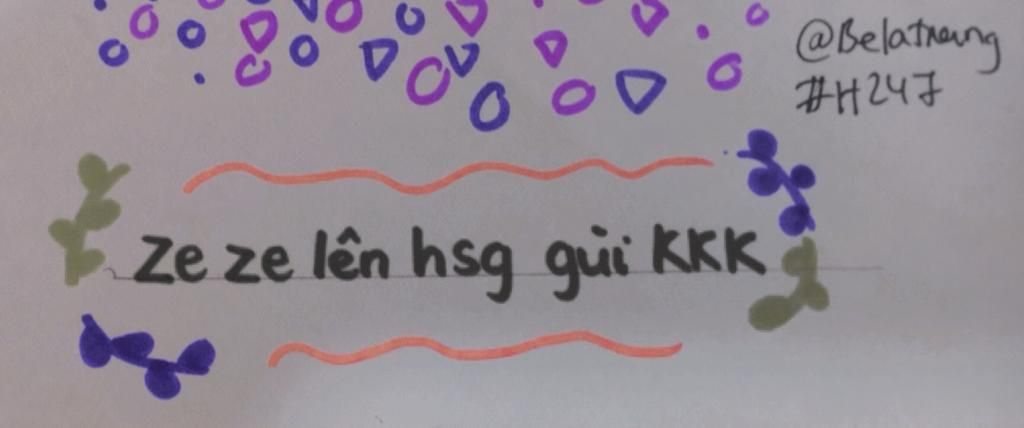 @Belatrang
#H247
Ze ze lên hsg gùi KKK